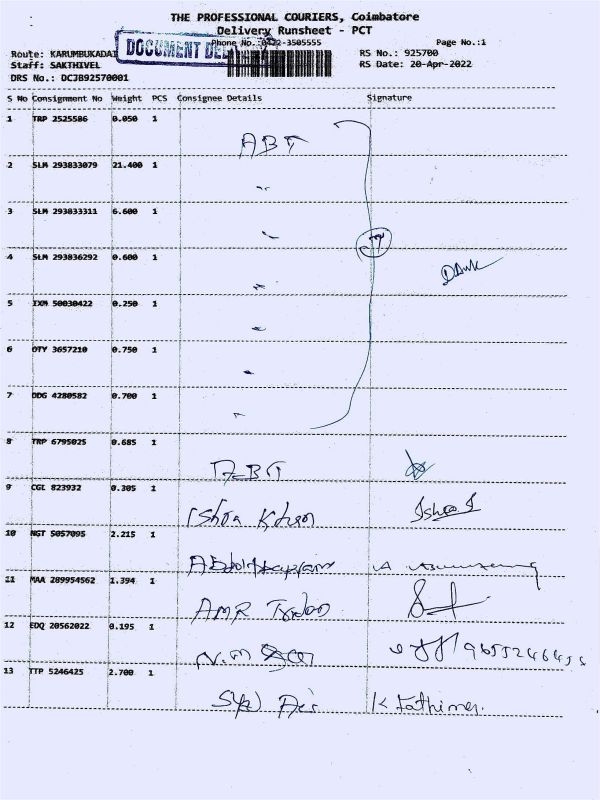 THE PROFESSIONAL COURIERS, Coimbatore
Delivery Runsheet - PCT
Phone No.:0422-3505555
Page No.:1
Route: KARUMBUKADAI
DOCUMENT DEL
RS No.: 925700
Staff: SAKTHIVEL
RS Date: 20-Apr-2022
DRS No.: DCJB92570001
S No Consignment No Weight PCS Consignee Details Signature
1 TRP 2525586 0.050 1
ABT
2 SLM 293833079 21.400 1
3 SLM 293833311 6.600 1
4 SLM 293836292 0.600 1
5 IXM 50030422 0.250 1
6 OTY 3657210 0.750 1
7 DDG 4280582 0.700 1
8 TRP 6795025 0.685 1
9 CGL 823932 0.305 1
10 NGT 5057095 2.215 1
11 MAA 289954562 1.394 1
AMR
12 EDQ 20562022 0.195 1
N.M
13 TTP 5246425 2.700 1
K Fathima